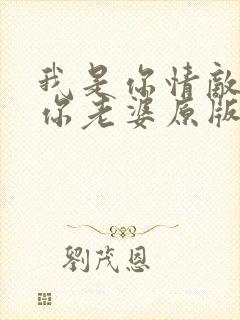 我是你情敵
你老婆原版
劉茂恩